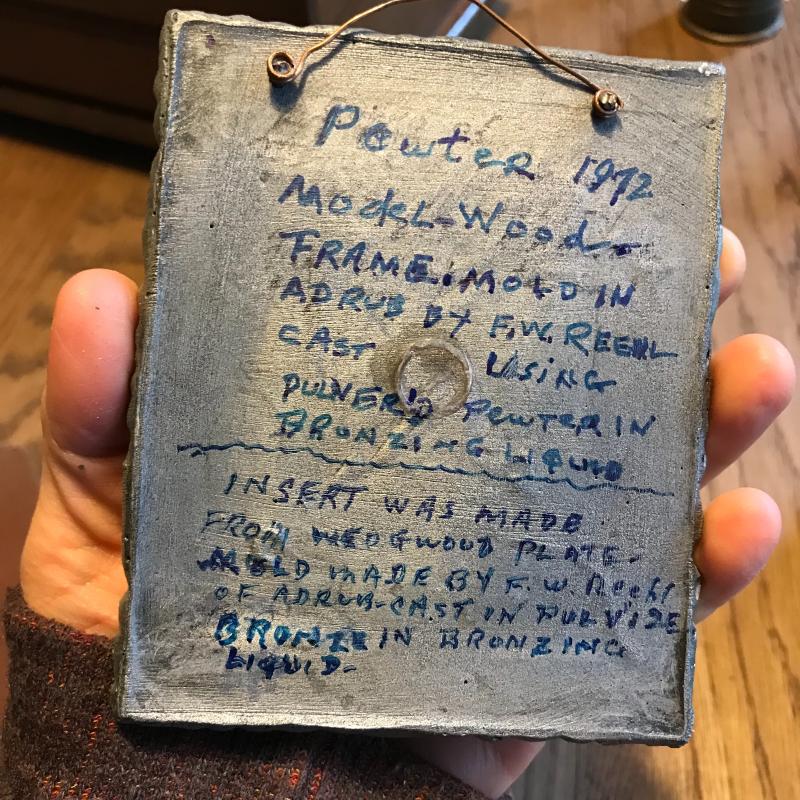 Pewter 1972
Model-Wood-
FRAME: MOLD IN
ADRUB BY F.W. REEHL
CAST USING
PULVER'D PEWTER IN
BRONZING LIQUID
INSERT WAS MADE
FROM WEDGWOOD PLATE-
MOLD MADE BY F.W. Reehl
OF ADRUB-CAST IN PULVIZE
BRONZE IN BRONZING
LIQUID-